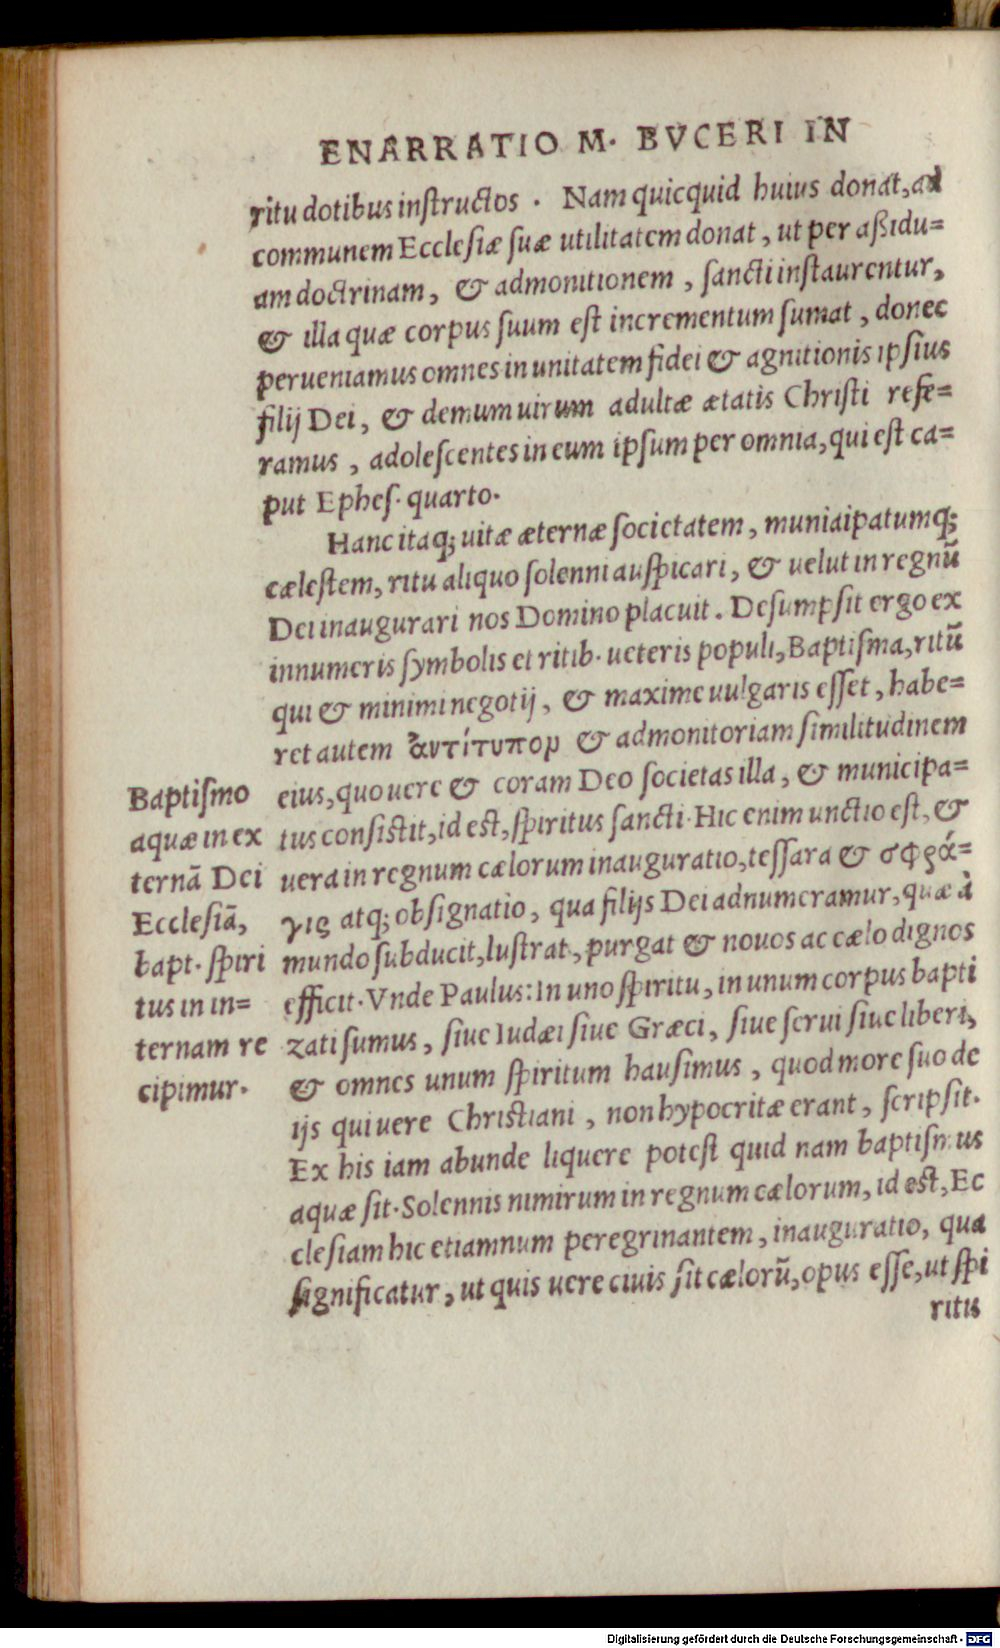 ENARRATIO M. BVCERI IN
ritu dotibus inſtructos . Nam quicquid huius donat, ad
communem Eccleſiæ ſuæ utilitatem donat , ut per aßidu=
am doctrinam, & admonitionem , ſancti inſtaurentur,
& illa quæ corpus ſuum eſt incrementum ſumat , donec
perueniamus omnes in unitatem fidei & agnitionis ipſius
filij Dei, & demum uirum adultæ ætatis Chriſti refe=
ramus , adoleſcentes in eum ipſum per omnia, qui eſt ca=
put Epheſ. quarto.
Hanc itaq; uitæ æternæ ſocietatem, municipatumq;
cæleſtem, ritu aliquo ſolenni auſpicari, & uelut in regnũ
Dei inaugurari nos Domino placuit. Deſumpſit ergo ex
innumeris ſymbolis et ritib. ueteris populi, Baptiſma, ritũ
qui & minimi negotij, & maxime uulgaris eſſet, habe=
ret autem ἀντίτυπον & admonitoriam ſimilitudinem
eius, quo uere & coram Deo ſocietas illa, & municipa=
tus conſiſtit, id est, ſpiritus ſancti. Hic enim unctio eſt, &
uera in regnum cælorum inauguratio, teſſara & σφρά=
γις atq; obſignatio, qua filijs Dei adnumeramur, quæ à
mundo ſubducit, luſtrat, purgat & nouos ac cælo dignos
efficit. Vnde Paulus: In uno ſpiritu, in unum corpus bapti
zati ſumus, ſiue Iudæi ſiue Græci, ſiue ſerui ſiue liberi,
& omnes unum ſpiritum hauſimus, quod more ſuo de
ijs qui uere Chriſtiani , non hypocritæ erant, ſcripſit.
Ex his iam abunde liquere poteſt quid nam baptiſmus
aquæ ſit. Solennis nimirum in regnum cælorum, id eſt, Ec
cleſiam hic etiamnum peregrinantem, inauguratio, qua
ſignificatur, ut quis uere ciuis ſit cælorũ, opus eſſe, ut ſpi
ritus
Baptiſmo
aquæ in ex
ternã Dei
Eccleſiã,
bapt. ſpiri
tus in in=
ternam re
cipimur.
Digitalisierung gefördert durch die Deutsche Forschungsgemeinschaft - DFG